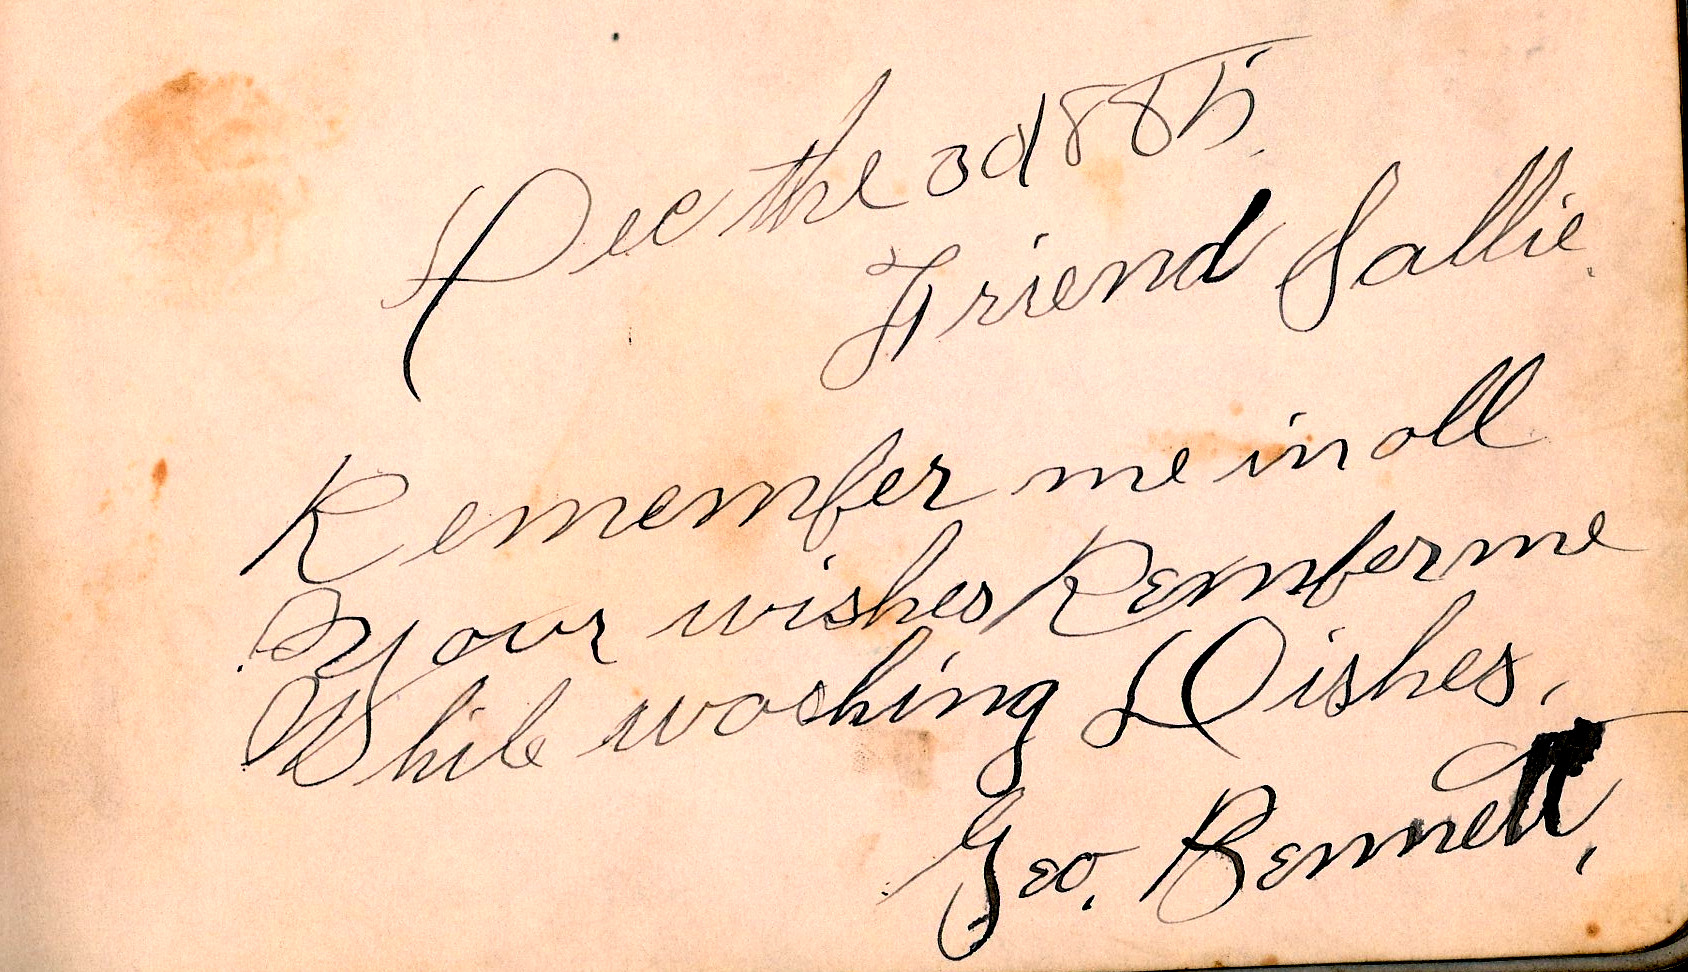 Dec the 3d 1885.
Friend Sallie.
Remember me in all
Your wishes Rember me
While washing Dishes,
Geo. Bennett,